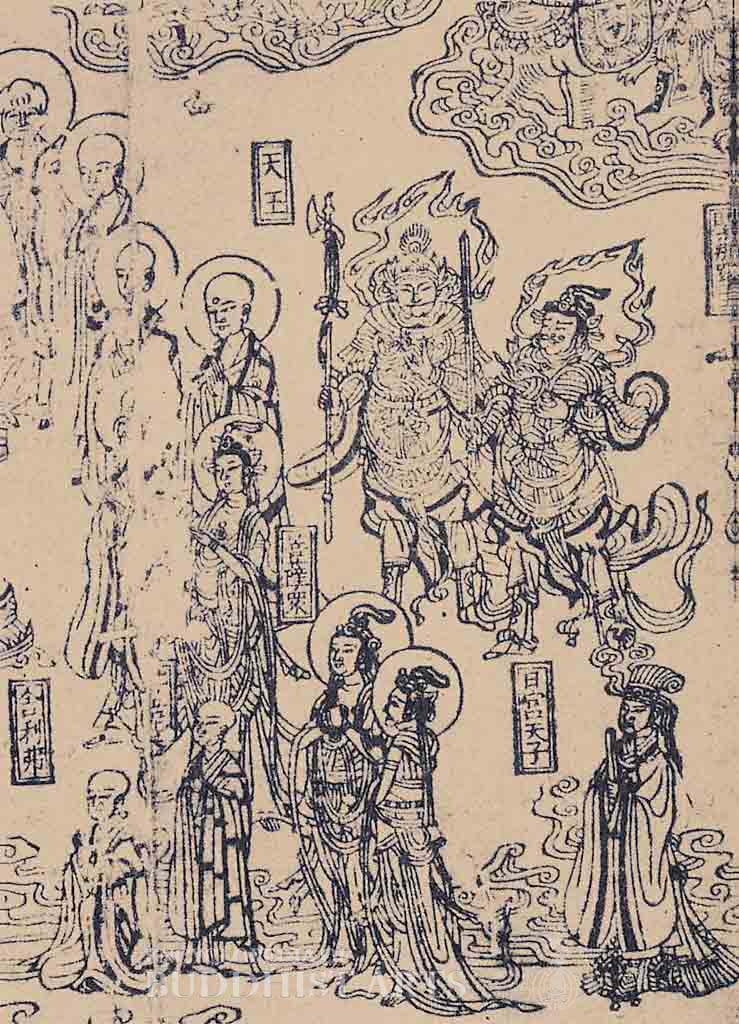 天王
菩薩衆
日宮天子
舍利弗
BUDDHIST ARTS